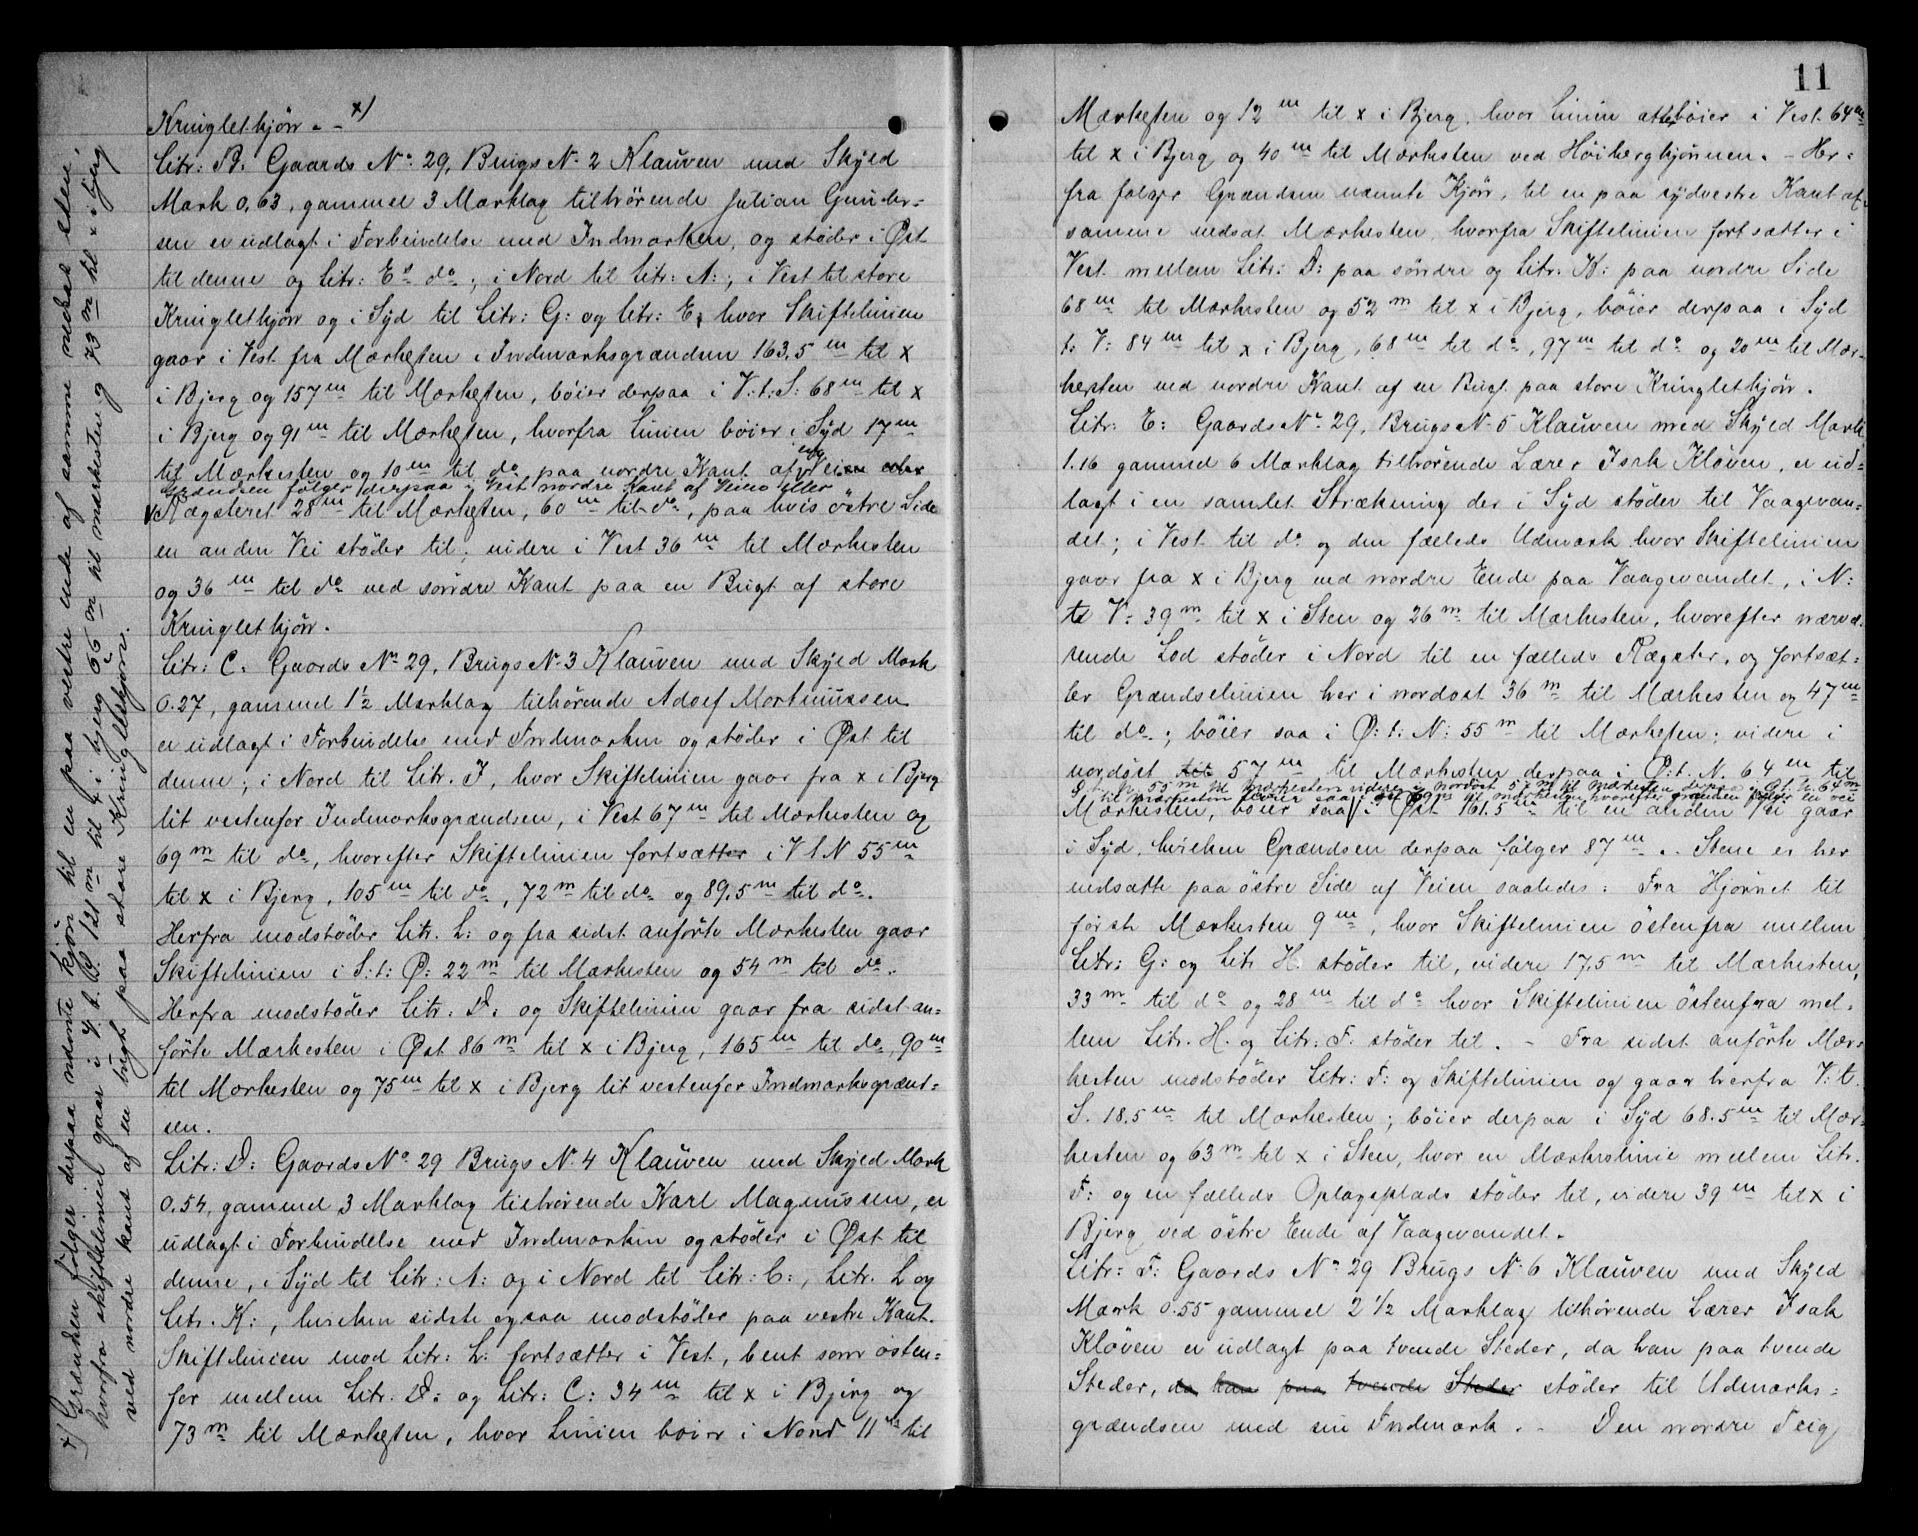 Kringletkjørn. – x)
Litr: B: Gaards No. 29, Brugs N. 2 Klauven med Skyld
Mark 0,63, gammel 3 Marklag tilhørende Julian Gunder-
sen er udlagt i Forbindelse med Indmarken, og støder i Øst
til denne og Litr: E do; i Nord til Litr: A:, i Vest til store
Kringletkjørn og i Syd til Litr: G: og Litr: E, hvor Skiftelinien
gaar i Vest fra Mærkesten i Indmarksgrændsen 163,5 m til x
i Bjerg og 157 m til Mærkesten, bøier derpaa i V:t:S: 68 m til x
i Bjerg og 91 m til Mærkesten, hvorfra Linien bøier i Syd 17 m
til Mærkesten og 10 m til do paa nordre Kant af Vei
Grændsen følger derpaa i Vest nordre Kant af Veien eller
Rægsteret 28 m til Mærkesten, 60 m til do, paa hvis østre Side
en anden Vei støder til; videre i Vest 36 m til Mærkesten
og 36 m til do ved søndre Kant paa en Bugt af store
Kringletkjørn.
Litr: C: Gaards No. 29, Brugs N. 3 Klauven med Skyld Mark
0.27, gammel 1½ Marklag tilhørende Adolf Mortinussen
er udlagt i Forbindelse med Indmarken og støder i Øst til
denne; i Nord til Litr. I, hvor Skiftelinien gaar fra x i Bjerg
lit vestenfor Indmarksgrændsen, i Vest 67 m til Mærkesten og
69 m til do, hvorefter Skiftelinien fortsætter i V t N 55 m
til x i Bjerg, 105 m til do, 72 m til do og 89,5 m til do.
Herfra modstøder Litr. L: og fra sidst anførte Mærkesten gaar
Skiftelinien i S:t: Ø: 22 m til Mærkesten og 54 m til do.
Herfra modstøder Litr. D: og Skiftelinien gaar fra sidst an-
førte Mærkesten i Øst 86 m til x i Bjerg, 165 m til do, 90 m
til Mærkesten og 75 m til x i Bjerg lit vestenfor Indmarksgrænd-
sen.
Litr: D: Gaards No. 29 Brugs N. 4 Klauven med Skyld Mark
0.54, gammel 3 Marklag tilhørende Karl Magnussen, er
udlagt i Forbindelse med Indmarken og støder i Øst til
denne, i Syd til Litr: A: og i Nord til Litr: C:, Litr. L og
Litr. K:, hvilken sidste ogsaa modstøder paa vestre Kant.
Skiftelinien mod Litr: L: fortsætter i Vest, bent som østen-
for mellem Litr: D: og Litr: C: 34 m til x i Bjerg og
73 m til Mærkesten, hvor Linien bøier i Nord 11 m til
x) Grændsen følger derpaa nævnte kjørn til en paa vestre ende af samme nedsat sten,
hvorfra skiftelinien gaar i 121 m til i bjerg 55 m til mærkesten og 73 m til x i bjerg
ved nordre kant af en bugt paa store Kringletkjørn.
11
Mærkesten og 12 m til x i Bjerg, hvor Linien atter bøier i Vest 64 m
til x i Bjerg og 40 m til Mærkesten ved Høibergkjønnen. – Her-
fra følger Grændsen nævnte Kjørn, til en paa sydvestre Kant af
samme nedsat Mærkesten, hvorfra Skiftelinien fortsætter i
Vest mellem Litr: D: paa søndre og Litr: K: paa nordre Side
68 m til Mærkesten og 52 m til x i Bjerg, bøier derpaa i Syd
t. V: 84 m til x i Bjerg, 68 m til do, 97 m til do og 20 m til Mær-
kesten ved nordre Kant af en Bugt paa store Kringletkjørn.
Litr: E: Gaards No. 29, Brugs N. 5 Klauven med Skyld Mark
1.16 gammel 6 Marklag tilhørende Lærer Isak Kløven, er ud-
lagt i en samlet Strækning der i Syd støder til Vaagevan-
det; i Vest til do og den fælleds Udmark hvor Skiftelinien
gaar fra x i Bjerg ved nordre Ende paa Vaagevandet, i N:
t V: 39 m til x i Sten og 26 m til Mærkesten, hvorefter nærvæ-
rende Lod støder i Nord til en fælleds Rægster, og fortsæt-
ter Grændselinien her i nordost 36 m til Mærkesten og 47 m
til do.; bøier saa i Ø:t: N: 55 m til Mærkesten; videre i
nordøst til 57 m til Mærkesten derpaa i Ø:t. N. 64 m til
55 m til mærkesten videre i nordøst 57 m til mærkesten derpaa i Ø. t. N. 64 m
til mærkesten bøier saa i til mærkesten hvorefter grænden følger en vei
Mærkesten, bøier saa i Øst 161.5 m til en anden Vei gaar
i Syd, hvilken Grændsen derpaa følger 87 m. Stene er her
nedsatte paa østre Side af Veien saaledes: Fra Hjørnet til
første Mærkesten 9 m, hvor Skiftelinien østenfra mellem
Litr: G: og Litr H. støder til, videre 17.5 m til Mærkesten,
33 m til do og 28 m til do hvor Skiftelinien østenfra mel-
lem Litr. H. og Litr: F: støder til. – Fra sidst anførte Mær-
kesten modstøder Litr: F: og Skiftelinien og gaar herfra V:t.
S. 18.5 m til Mærkesten; bøier derpaa i Syd 68.5 m til Mær-
kesten og 63 m til x i Sten, hvor en Mærkelinie mellem Litr.
F: og en fælleds Oplagsplads støder til, videre 39 m til x i
Bjerg ved østre Ende af Vaagevandet.
Litr: F: Gaards No. 29 Brugs N. 6 Klauven med Skyld
Mark 0.55 gammel 2 1/2 Marklag tilhørende Lærer Isak
Kløven er udlagt paa tvende Steder, da han paa tvende
Steder, da han paa tvende Steder støder til Udmarks-
grændsen med sin Indmark. – Den nordre Teig